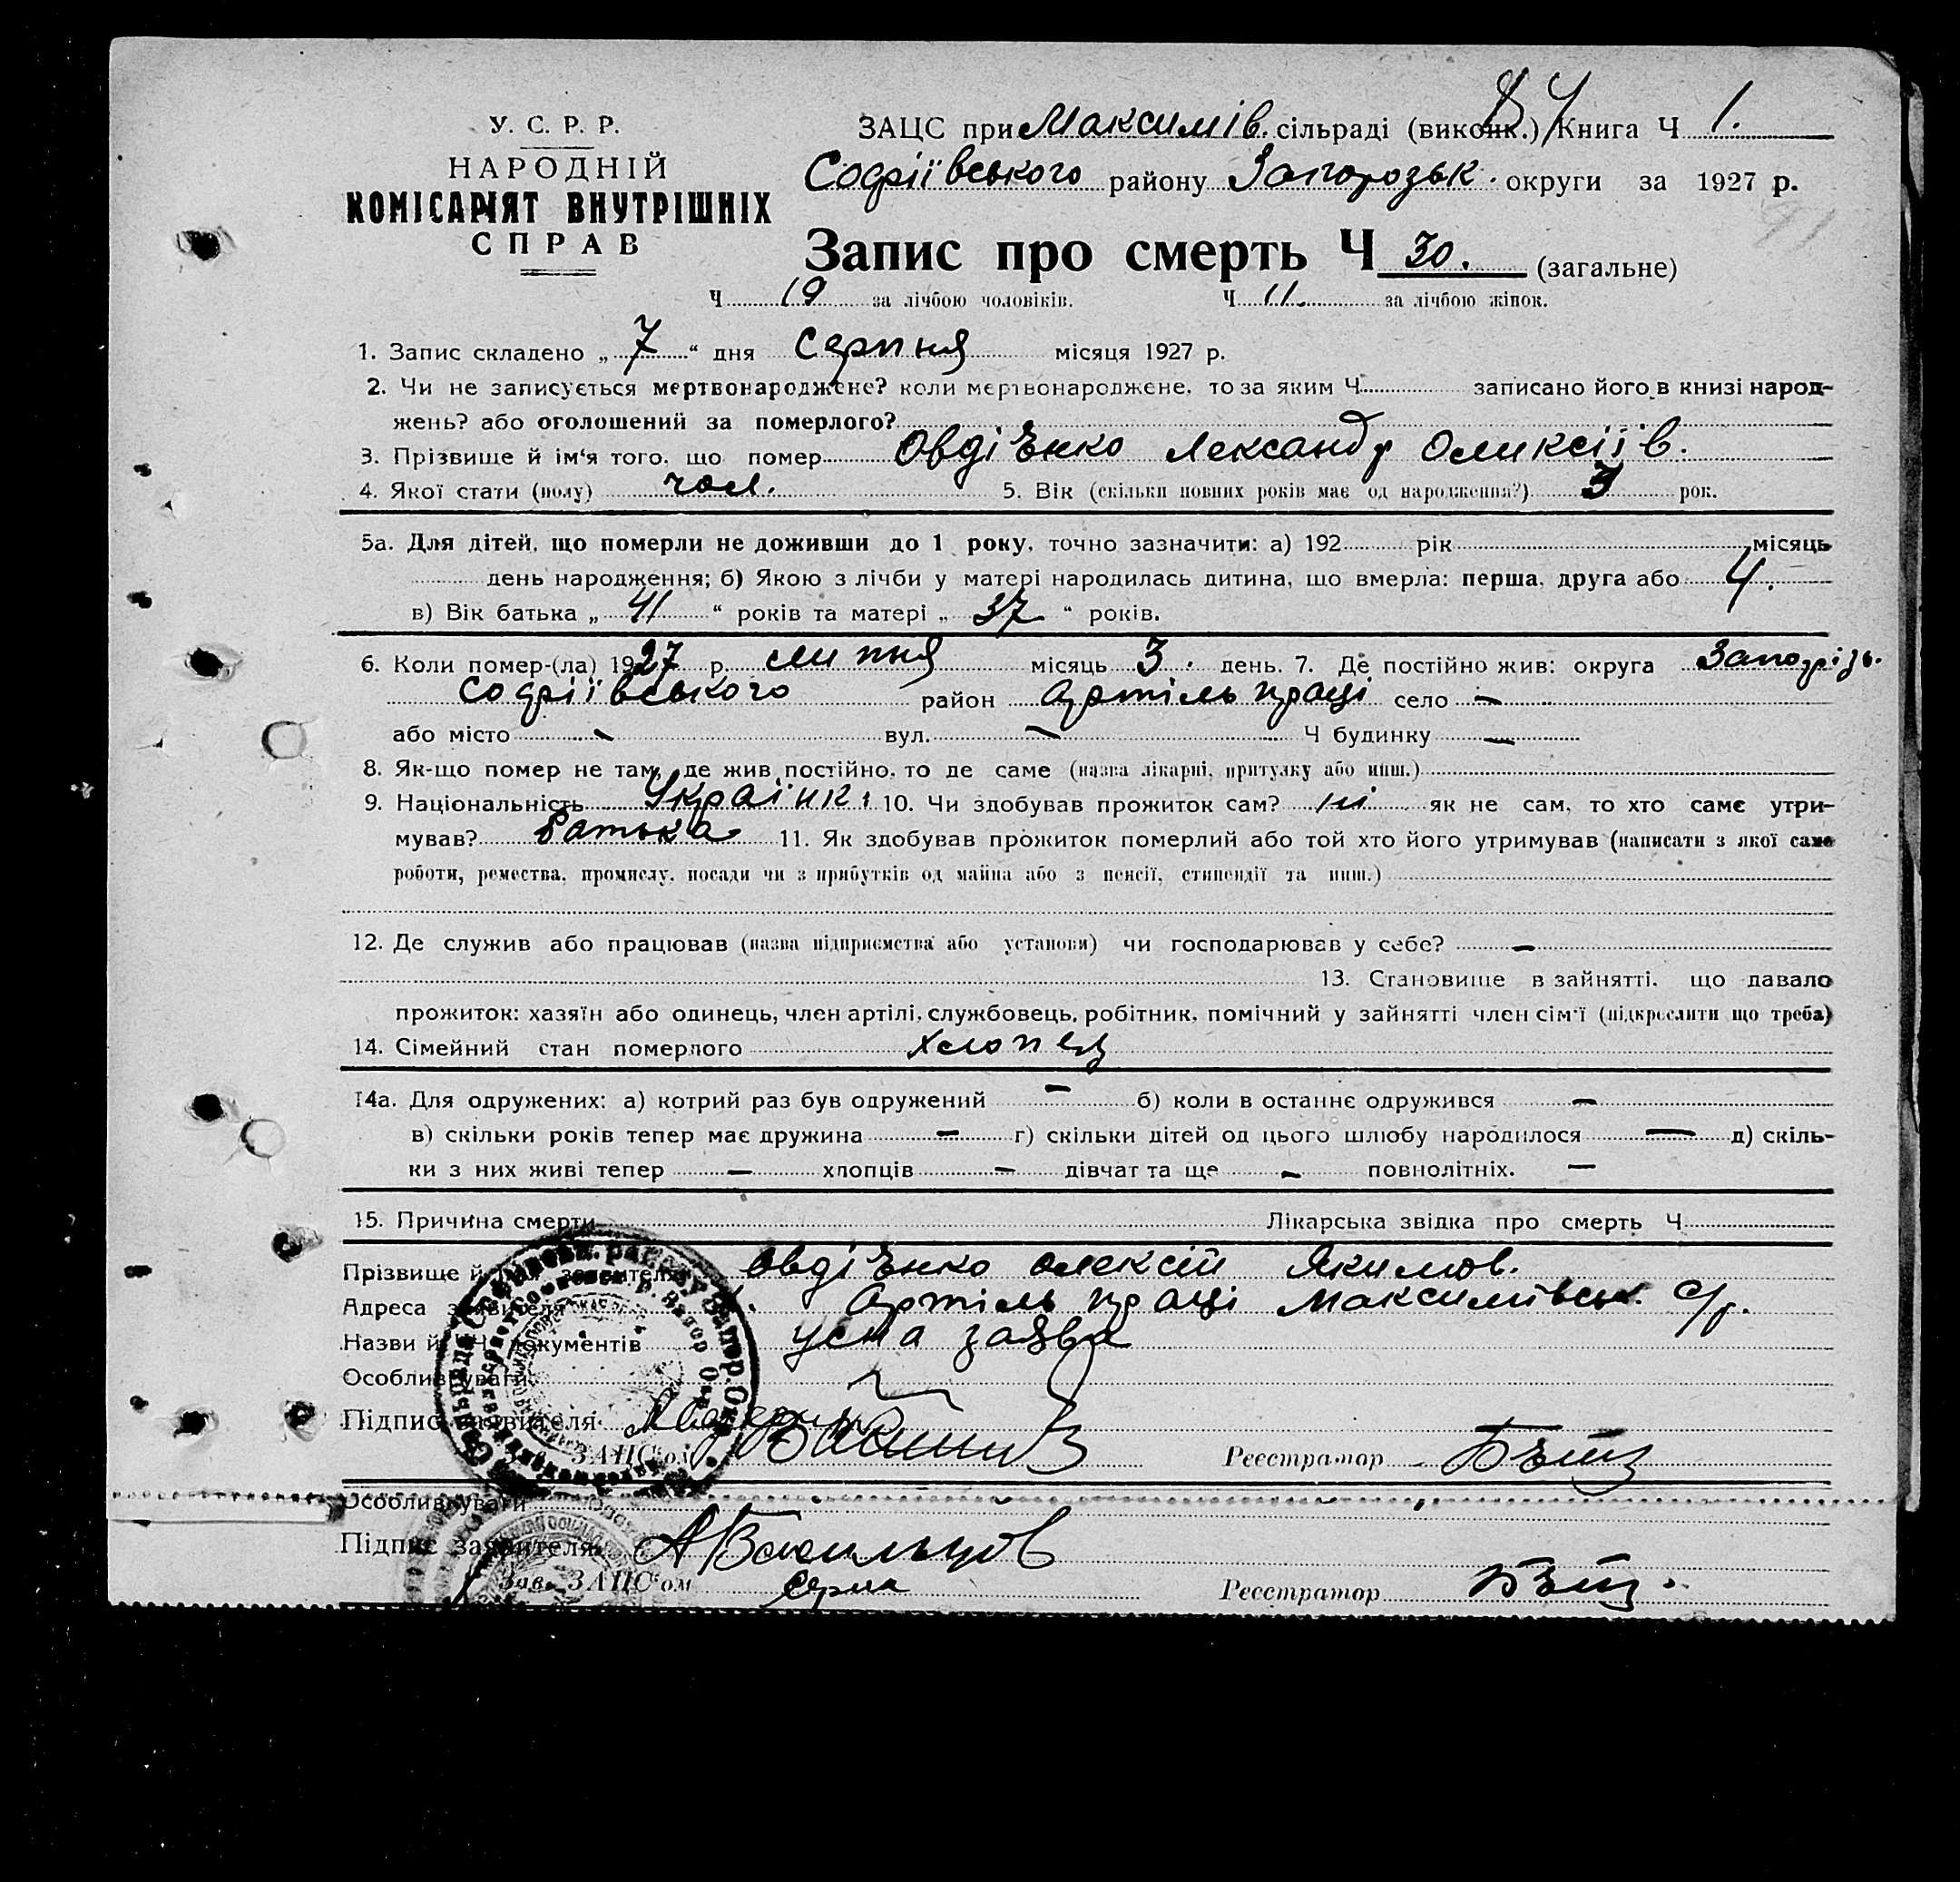 У. С. Р. Р.
НАРОДНІЙ
КОМІСАРІЯТ ВНУТРІШНІХ
СПРАВ
ЗАЦС при Максимів. сільраді (виконк.) 84 Книга Ч 1.
Софіївського району Запорозьк. округи за 1927 р.
Запис про смерть Ч 30. (загальне)
Ч 19 за лічбою чоловіків. Ч 11. за лічбою жінок.
1. Запис складено „ 7 “ дня Серпня місяця 1927 р.
2. Чи не записується мертвонароджене? коли мертвонароджене, то за яким Ч записано його в книзі народ-
жень? або оголошений за померлого?
3. Прізвище й ім‘я того, що помер Овдіэнко Лександр Оликсіїв.
4. Якої стати (полу) чол. 5. Вік (скільки повних років має од народження?) 3 рок.
5а. Для дітей, що померли не доживши до 1 року, точно зазначити: а) 192 рік місяць
день народження; б) Якою з лічби у матері народилась дитина, що вмерла: перша, друга або 4.
в) Вік батька „ 41 “ років та матері „ 37 “ років.
6. Коли помер-(ла) 1927 р. липня місяць 3. день. 7. Де постійно жив: округа Запорізь.
Софіївського район Артіль праці село –
або місто – вул. – Ч будинку –
8. Як-що помер не там, де жив постійно, то де саме (назва лікарні, притулку або инш.)
9. Національність Українк. 10. Чи здобував прожиток сам? ні як не сам, то хто саме утри-
мував? батька 11. Як здобував прожиток померлий або той хто його утримував (написати з якої саме
роботи, ремества, промислу, посади чи з прибутків од майна або з пенсії, стипендії та инш.)
12. Де служив або працював (назва підприємства або установи) чи господарював у себе? –
13. Становище в зайнятті, що давало
прожиток: хазяїн або одинець, член артілі, службовець, робітник, помічний у зайнятті член сім‘ї (підкреслити що треба)
14. Сімейний стан померлого хлопец
14а. Для одружених: а) котрий раз був одружений – б) коли в останнє одружився –
в) скільки років тепер має дружина – г) скільки дітей од цього шлюбу народилося – д) скіль-
ки з них живі тепер – хлопців – дівчат та ще – повнолітніх. –
15. Причина смерти Лікарська звідка про смерть Ч
Прізвище й заявителя Овдіэнко Олексій Якимов.
Адреса заявителя Артіль праці Максимівськ. С/р.
Назви й Ч документів усна заява
Особливуваги
Підпис заявителя
ЗАЦС‘ом Реєстратор
Особливуваги
Підпис заявителя АВасильцов
Зав. ЗАЦС‘ом Реєстратор